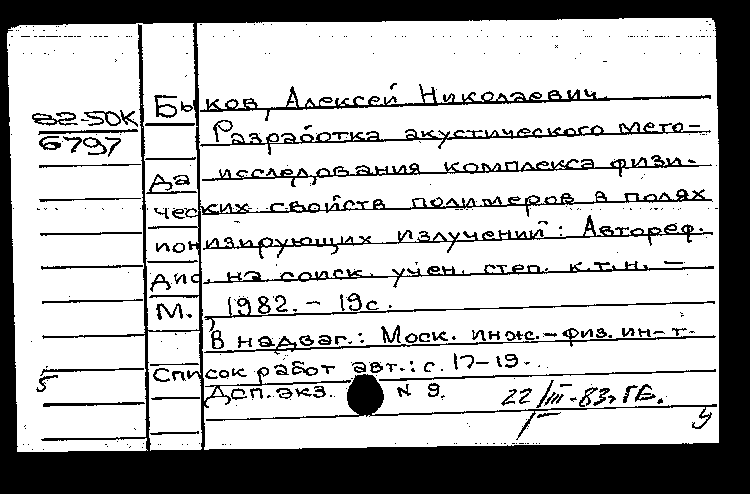 82-50К
6797
Быков, Алексей Николаевич.
Разработка акустического мето-
да исследования комплекса физи-
ческих свойств полимеров в полях
ионизирующих излучений: Автореф.
дис. на соиск. учен. степ. к.т.н. –
М., 1982. – 19с.
В надзаг.: Моск. инж.-физ. ин-т.
Список работ авт.: с. 17-19.
Дсп. экз. N 9.
22/III-83г. ГБ.
5
у